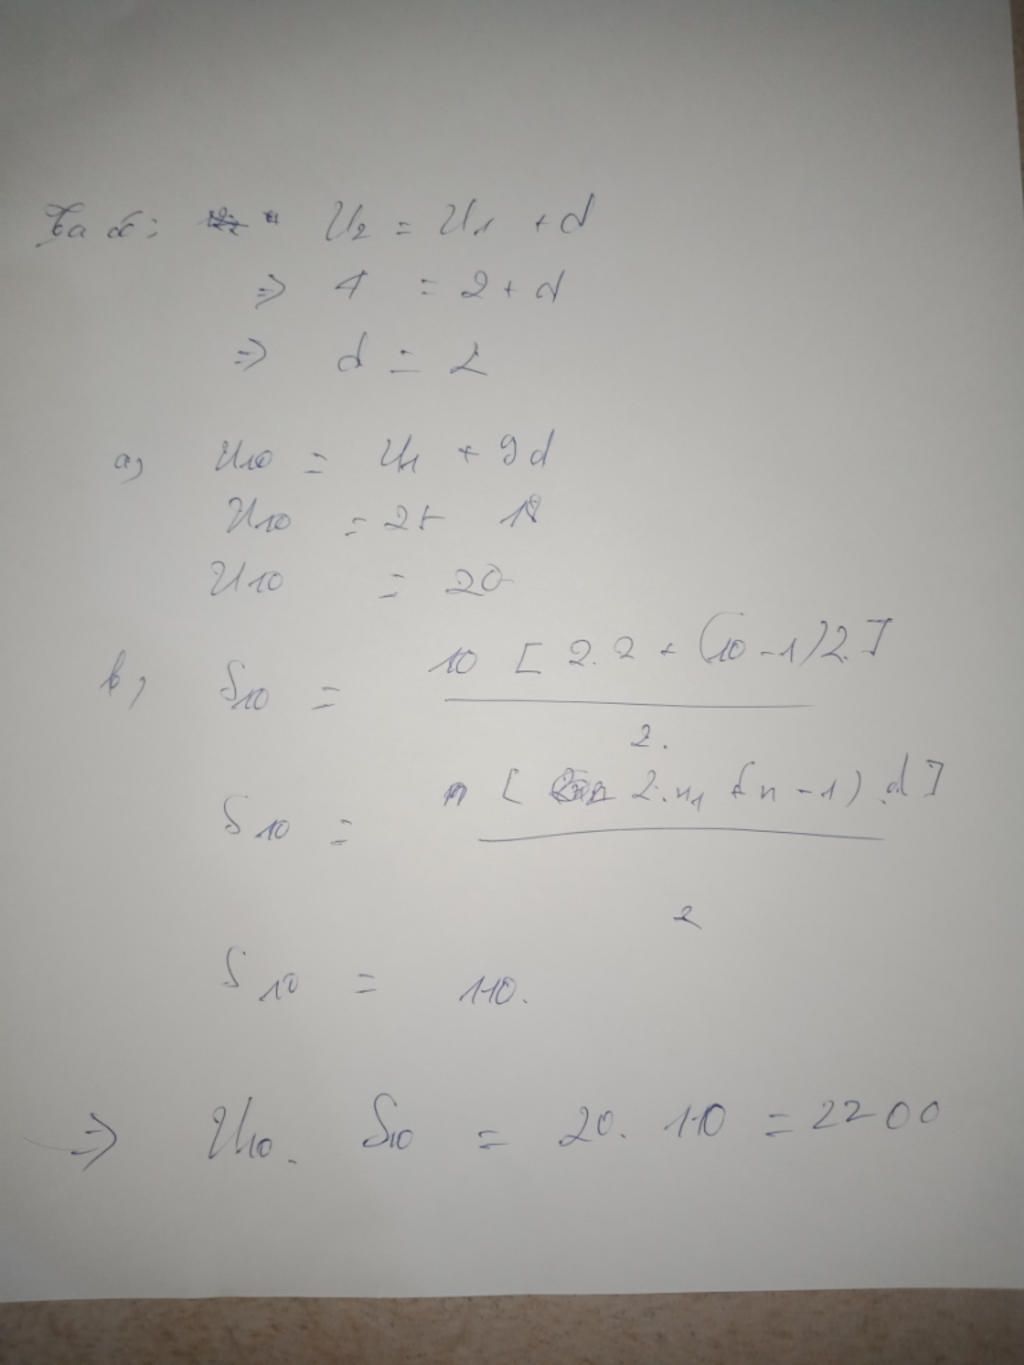 Ta có: U₂ = U₁ + d
=> 4 = 2 + d
=> d = 2
a, U₁₀ = U₁ + 9d
U₁₀ = 2 + 18
U₁₀ = 20
b, S₁₀ = 10 [ 2.2 + (10-1)2.]
2.
S₁₀ = n [ 2.u₁ + (n-1).d ]
2
S₁₀ = 110.
=> U₁₀. S₁₀ = 20. 110 = 2200